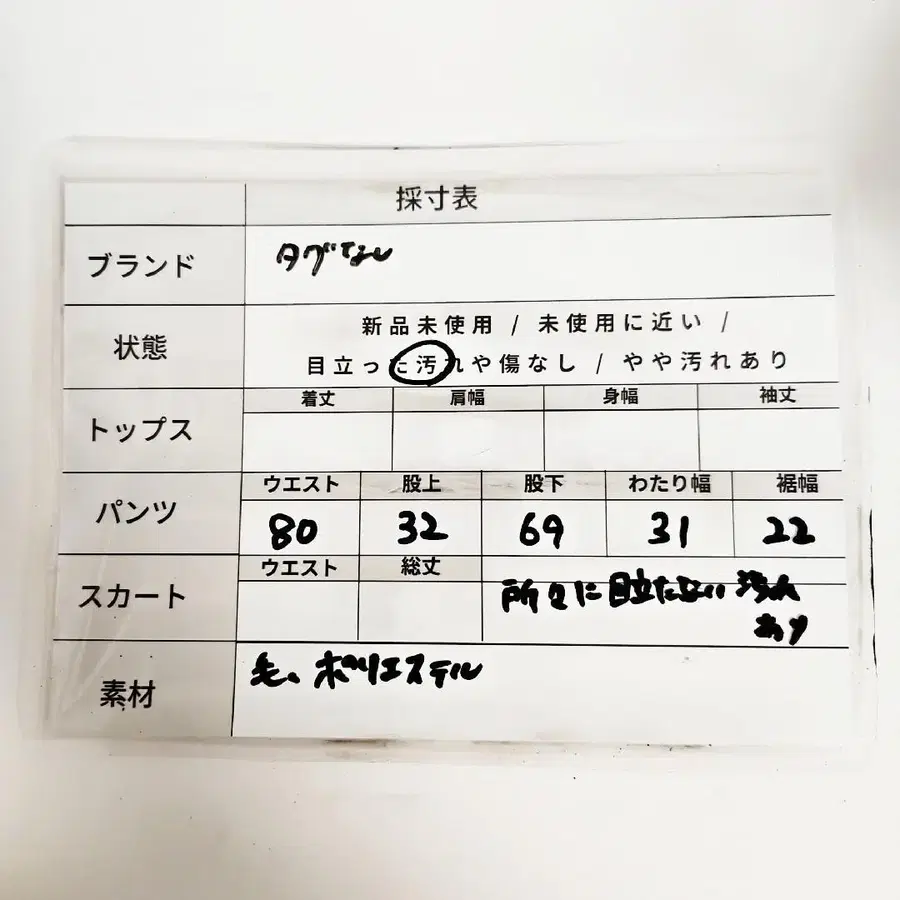 採寸表
ブランド タグなし
状態 新品未使用 / 未使用に近い /
目立った汚れや傷なし / やや汚れあり
着丈 肩幅 身幅 袖丈
トップス
ウエスト 股上 股下 わたり幅 裾幅
パンツ 80 32 69 31 22
ウエスト 総丈
スカート 所々に目立たない汚れ
あり
素材 毛、ポリエステル